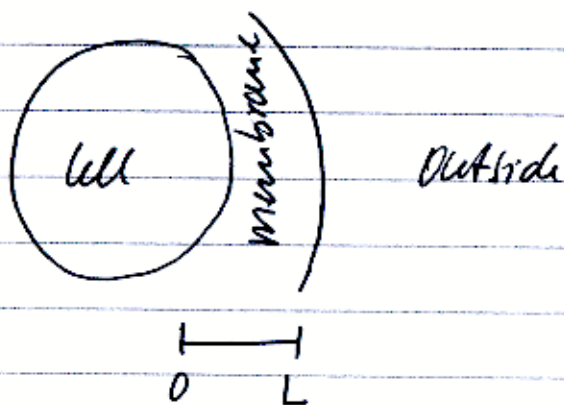 Cell
membrane
Outside
0 L